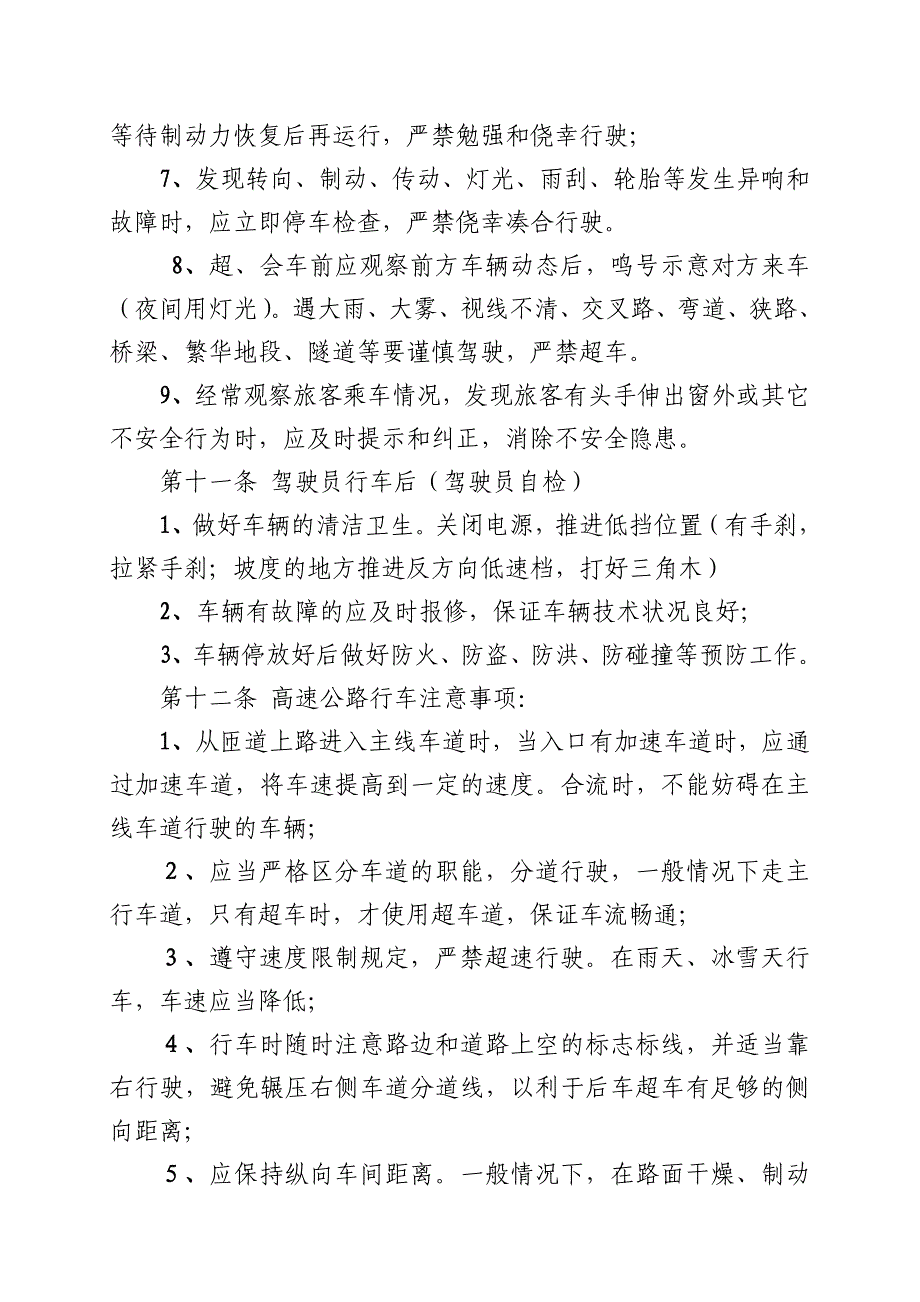 等待制动力恢复后再运行，严禁勉强和侥幸行驶；
7、发现转向、制动、传动、灯光、雨刮、轮胎等发生异响和
故障时，应立即停车检查，严禁侥幸凑合行驶。
8、超、会车前应观察前方车辆动态后，鸣号示意对方来车
（夜间用灯光）。遇大雨、大雾、视线不清、交叉路、弯道、狭路、
桥梁、繁华地段、隧道等要谨慎驾驶，严禁超车。
9、经常观察旅客乘车情况，发现旅客有头手伸出窗外或其它
不安全行为时，应及时提示和纠正，消除不安全隐患。
第十一条 驾驶员行车后（驾驶员自检）
1、做好车辆的清洁卫生。关闭电源，推进低挡位置（有手刹，
拉紧手刹；坡度的地方推进反方向低速档，打好三角木）
2、车辆有故障的应及时报修，保证车辆技术状况良好；
3、车辆停放好后做好防火、防盗、防洪、防碰撞等预防工作。
第十二条 高速公路行车注意事项：
1、从匝道上路进入主线车道时，当入口有加速车道时，应通
过加速车道，将车速提高到一定的速度。合流时，不能妨碍在主
线车道行驶的车辆；
２、应当严格区分车道的职能，分道行驶，一般情况下走主
行车道，只有超车时，才使用超车道，保证车流畅通；
３、遵守速度限制规定，严禁超速行驶。在雨天、冰雪天行
车，车速应当降低；
４、行车时随时注意路边和道路上空的标志标线，并适当靠
右行驶，避免辗压右侧车道分道线，以利于后车超车有足够的侧
向距离；
５、应保持纵向车间距离。一般情况下，在路面干燥、制动